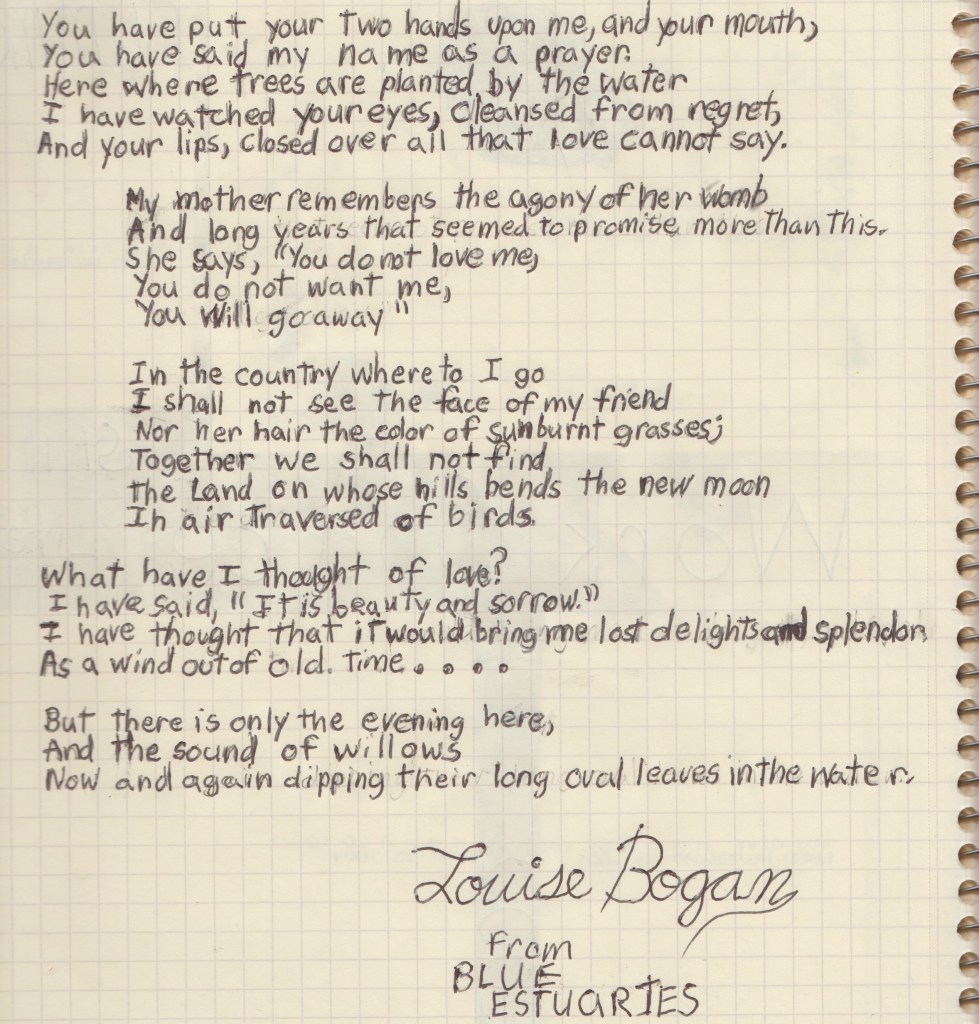 You have put your Two hands upon me, and your mouth,
You have said my name as a prayer.
Here where trees are planted by the water
I have watched your eyes, cleansed from regret,
And your lips, closed over all that love cannot say.
My mother remembers the agony of her womb
And long years that seemed to promise more Than this.
She says, "You do not love me,
You do not want me,
You will go away"
In the country where to I go
I shall not see the face of my friend
Nor her hair the color of sunburnt grasses;
Together we shall not find
The Land on whose hills bends the new moon
In air Traversed of birds.
What have I thought of love?
I have said, "It is beauty and sorrow."
I have thought that it would bring me lost delights and splendor
As a wind out of old. Time . . . .
But there is only the evening here,
And the sound of willows
Now and again dipping their long oval leaves in the water.
Louise Bogan
From
BLUE
ESTUARIES